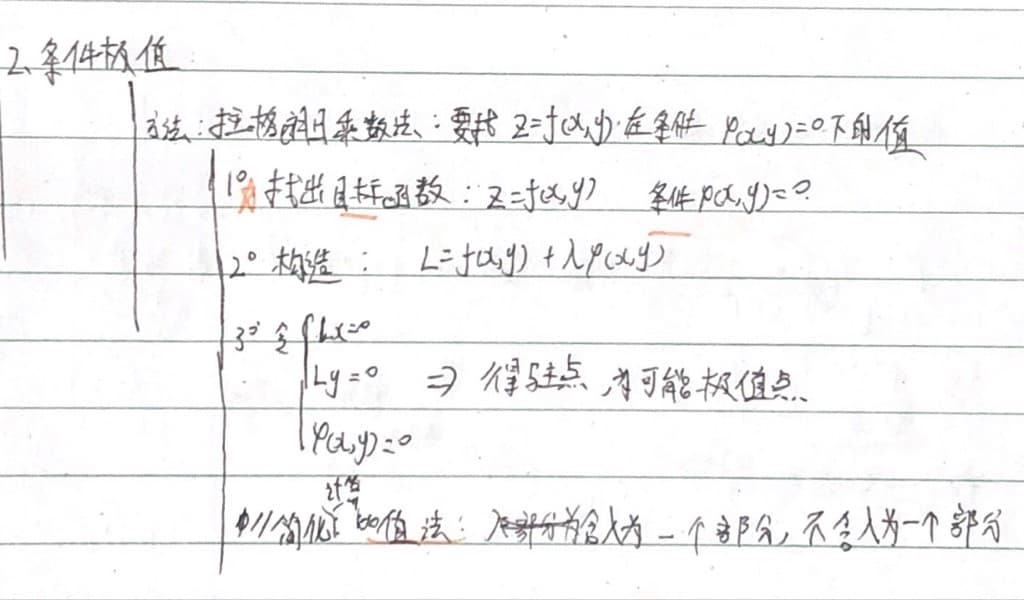 2、条件极值
方法：拉格朗日乘数法：要找 z=f(x,y) 在条件 φ(x,y)=0下的值
1° 找出目标函数：z=f(x,y) 条件φ(x,y)=0
2° 构造： L=f(x,y)+λφ(x,y)
3° 令 Lx=0
Ly=0 ⇒ 得驻点，为可能极值点、
φ(x,y)=0
计算
简化 值法：含λ为一个部分，不含λ为一个部分